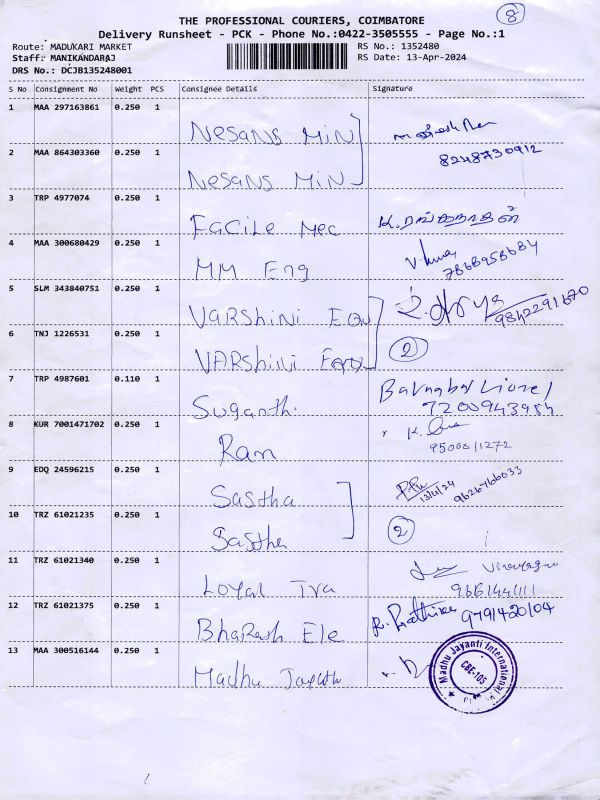 8
THE PROFESSIONAL COURIERS, COIMBATORE
Delivery Runsheet - PCK - Phone No.:0422-3505555 - Page No.:1
Route: MADUKARI MARKET
RS No.: 1352480
Staff: MANIKANDARAJ
RS Date: 13-Apr-2024
DRS No.: DCJB135248001
S No Consignment No Weight PCS Consignee Details Signature
1 MAA 297163861 0.250 1 Nesans Min
2 MAA 864303360 0.250 1 Nesans Min 8248730912
3 TRP 4977074 0.250 1 Facile Mec K. ரங்கநாதன்
4 MAA 300680429 0.250 1 MM Eng 7868958684
5 SLM 343840751 0.250 1 VARShiNi Equ 9842291670
6 TNJ 1226531 0.250 1 VARShiNi Equ 2
7 TRP 4987601 0.110 1 Suganthi Barnabas Lionel
7200943954
8 KUR 7001471702 0.250 1 Ram
9500011272
9 EDQ 24596215 0.250 1 Sastha 13/4/24 9626766033
10 TRZ 61021235 0.250 1 Sastha 2
11 TRZ 61021340 0.250 1 Loyal Tra
12 TRZ 61021375 0.250 1 Bharath Ele 9791420104
13 MAA 300516144 0.250 1 Madhu Jayanth
Madhu Jayanti International
CBE-105